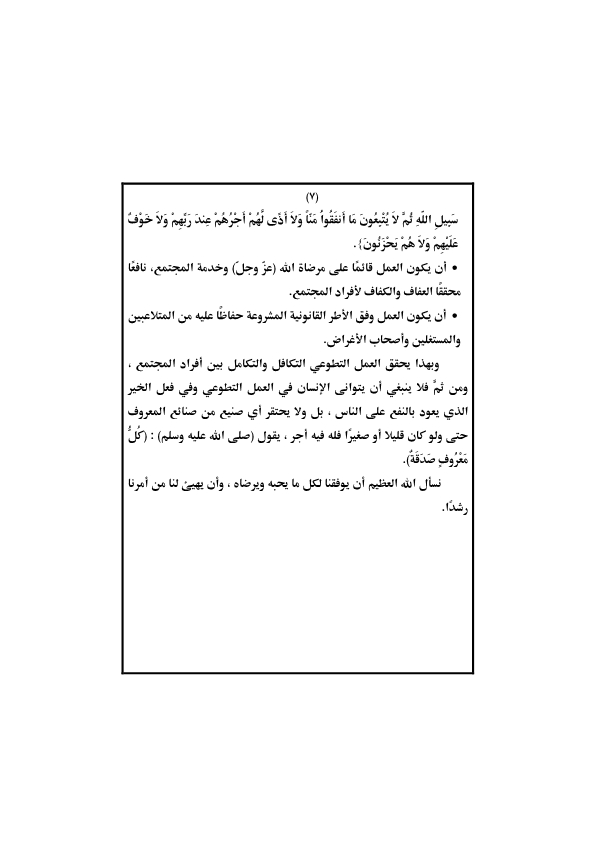 (٧)
سَبِيلِ اللّهِ ثُمَّ لاَ يُتْبِعُونَ مَا أَنفَقُواُ مَنّاً وَلاَ أَذًى لَّهُمْ أَجْرُهُمْ عِندَ رَبِّهِمْ وَلاَ خَوْفٌ
عَلَيْهِمْ وَلاَ هُمْ يَحْزَنُونَ}.
• أن يكون العمل قائمًا على مرضاة الله (عزّ وجلّ) وخدمة المجتمع، نافعًا
محققًا العفاف والكفاف لأفراد المجتمع.
• أن يكون العمل وفق الأطر القانونية المشروعة حفاظًا عليه من المتلاعبين
والمستغلين وأصحاب الأغراض.
وبهذا يحقق العمل التطوعي التكافل والتكامل بين أفراد المجتمع ،
ومن ثمَّ فلا ينبغي أن يتوانى الإنسان في العمل التطوعي وفي فعل الخير
الذي يعود بالنفع على الناس ، بل ولا يحتقر أي صنيع من صنائع المعروف
حتى ولو كان قليلا أو صغيرًا فله فيه أجر ، يقول (صلى الله عليه وسلم) : (كُلُّ
مَعْرُوفٍ صَدَقَةٌ).
نسأل الله العظيم أن يوفقنا لكل ما يحبه ويرضاه ، وأن يهيئ لنا من أمرنا
رشدًا.